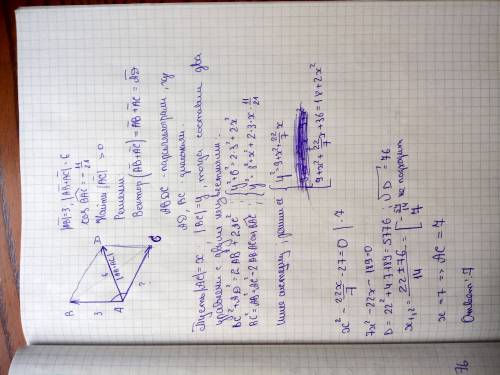 |AB|=3, |AB+AC|=6
cos BAC = -11/21
Найти |AC| > 0
Решение
Вектор |AB+AC| = AB+AC = AD
ABDC - параллелограмм, где
AD, BC диагонали.
Пусть |AC|=x, |BC|=y, тогда составим два
уравнения с двумя неизвестными.
BC²+AD²=2AB²+2AC² { y²+6²=2·3²+2x²
BC²=AB²+AC²-2AB·AC·cos BAC { y²=3²+x²+2·3·x·11/21
Имея систему, решим её { y²=9+x²+22/7x
9+x²+22/7x+36=18+2x²
x²-22x/7-27=0 |·7
7x²-22x-189=0
D=22²+4·7·189=5776, √D=76
x₁,₂=22±76/14=[-27/7 не подходит
7
x=7=>AC=7
Ответ: 7
B
D
3
6
|AB+AC|
A
?
C
76